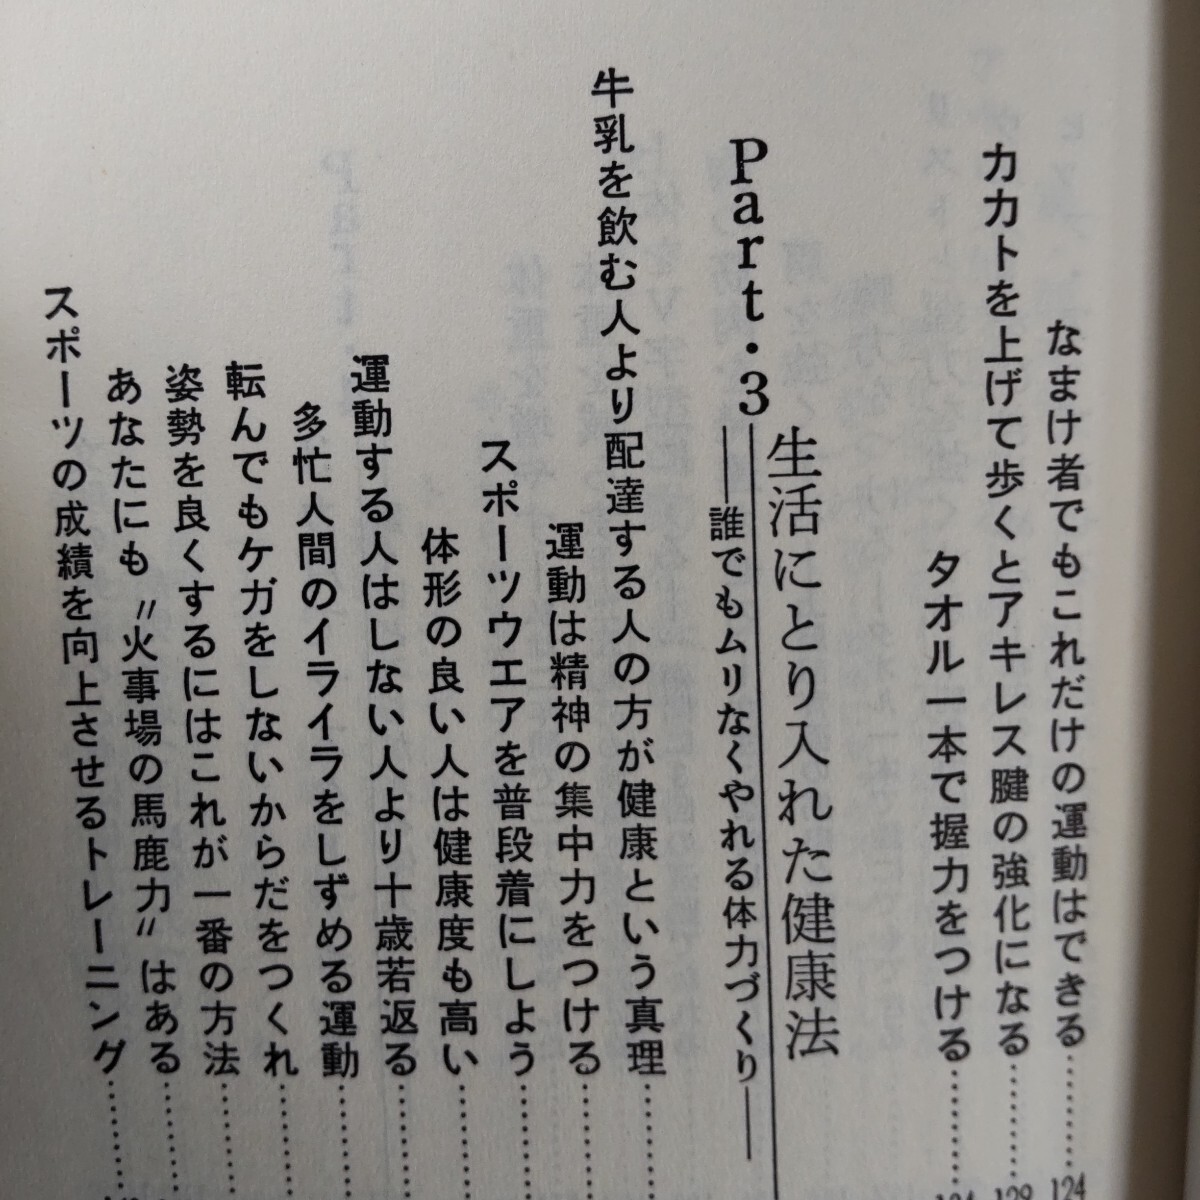 なまけ者でもこれだけの運動はできる…………124
カカトを上げて歩くとアキレス腱の強化になる…………129
タオル一本で握力をつける…………
Part・3 生活にとり入れた健康法
――誰でもムリなくやれる体力づくり――
牛乳を飲む人より配達する人の方が健康という真理…………
運動は精神の集中力をつける…………
スポーツウエアを普段着にしよう…………
体形の良い人は健康度も高い…………
運動する人はしない人より十歳若返る…………
多忙人間のイライラをしずめる運動…………
転んでもケガをしないからだをつくれ…………
姿勢を良くするにはこれが一番の方法…………
あなたにも〝火事場の馬鹿力〟はある…………
スポーツの成績を向上させるトレーニング…………